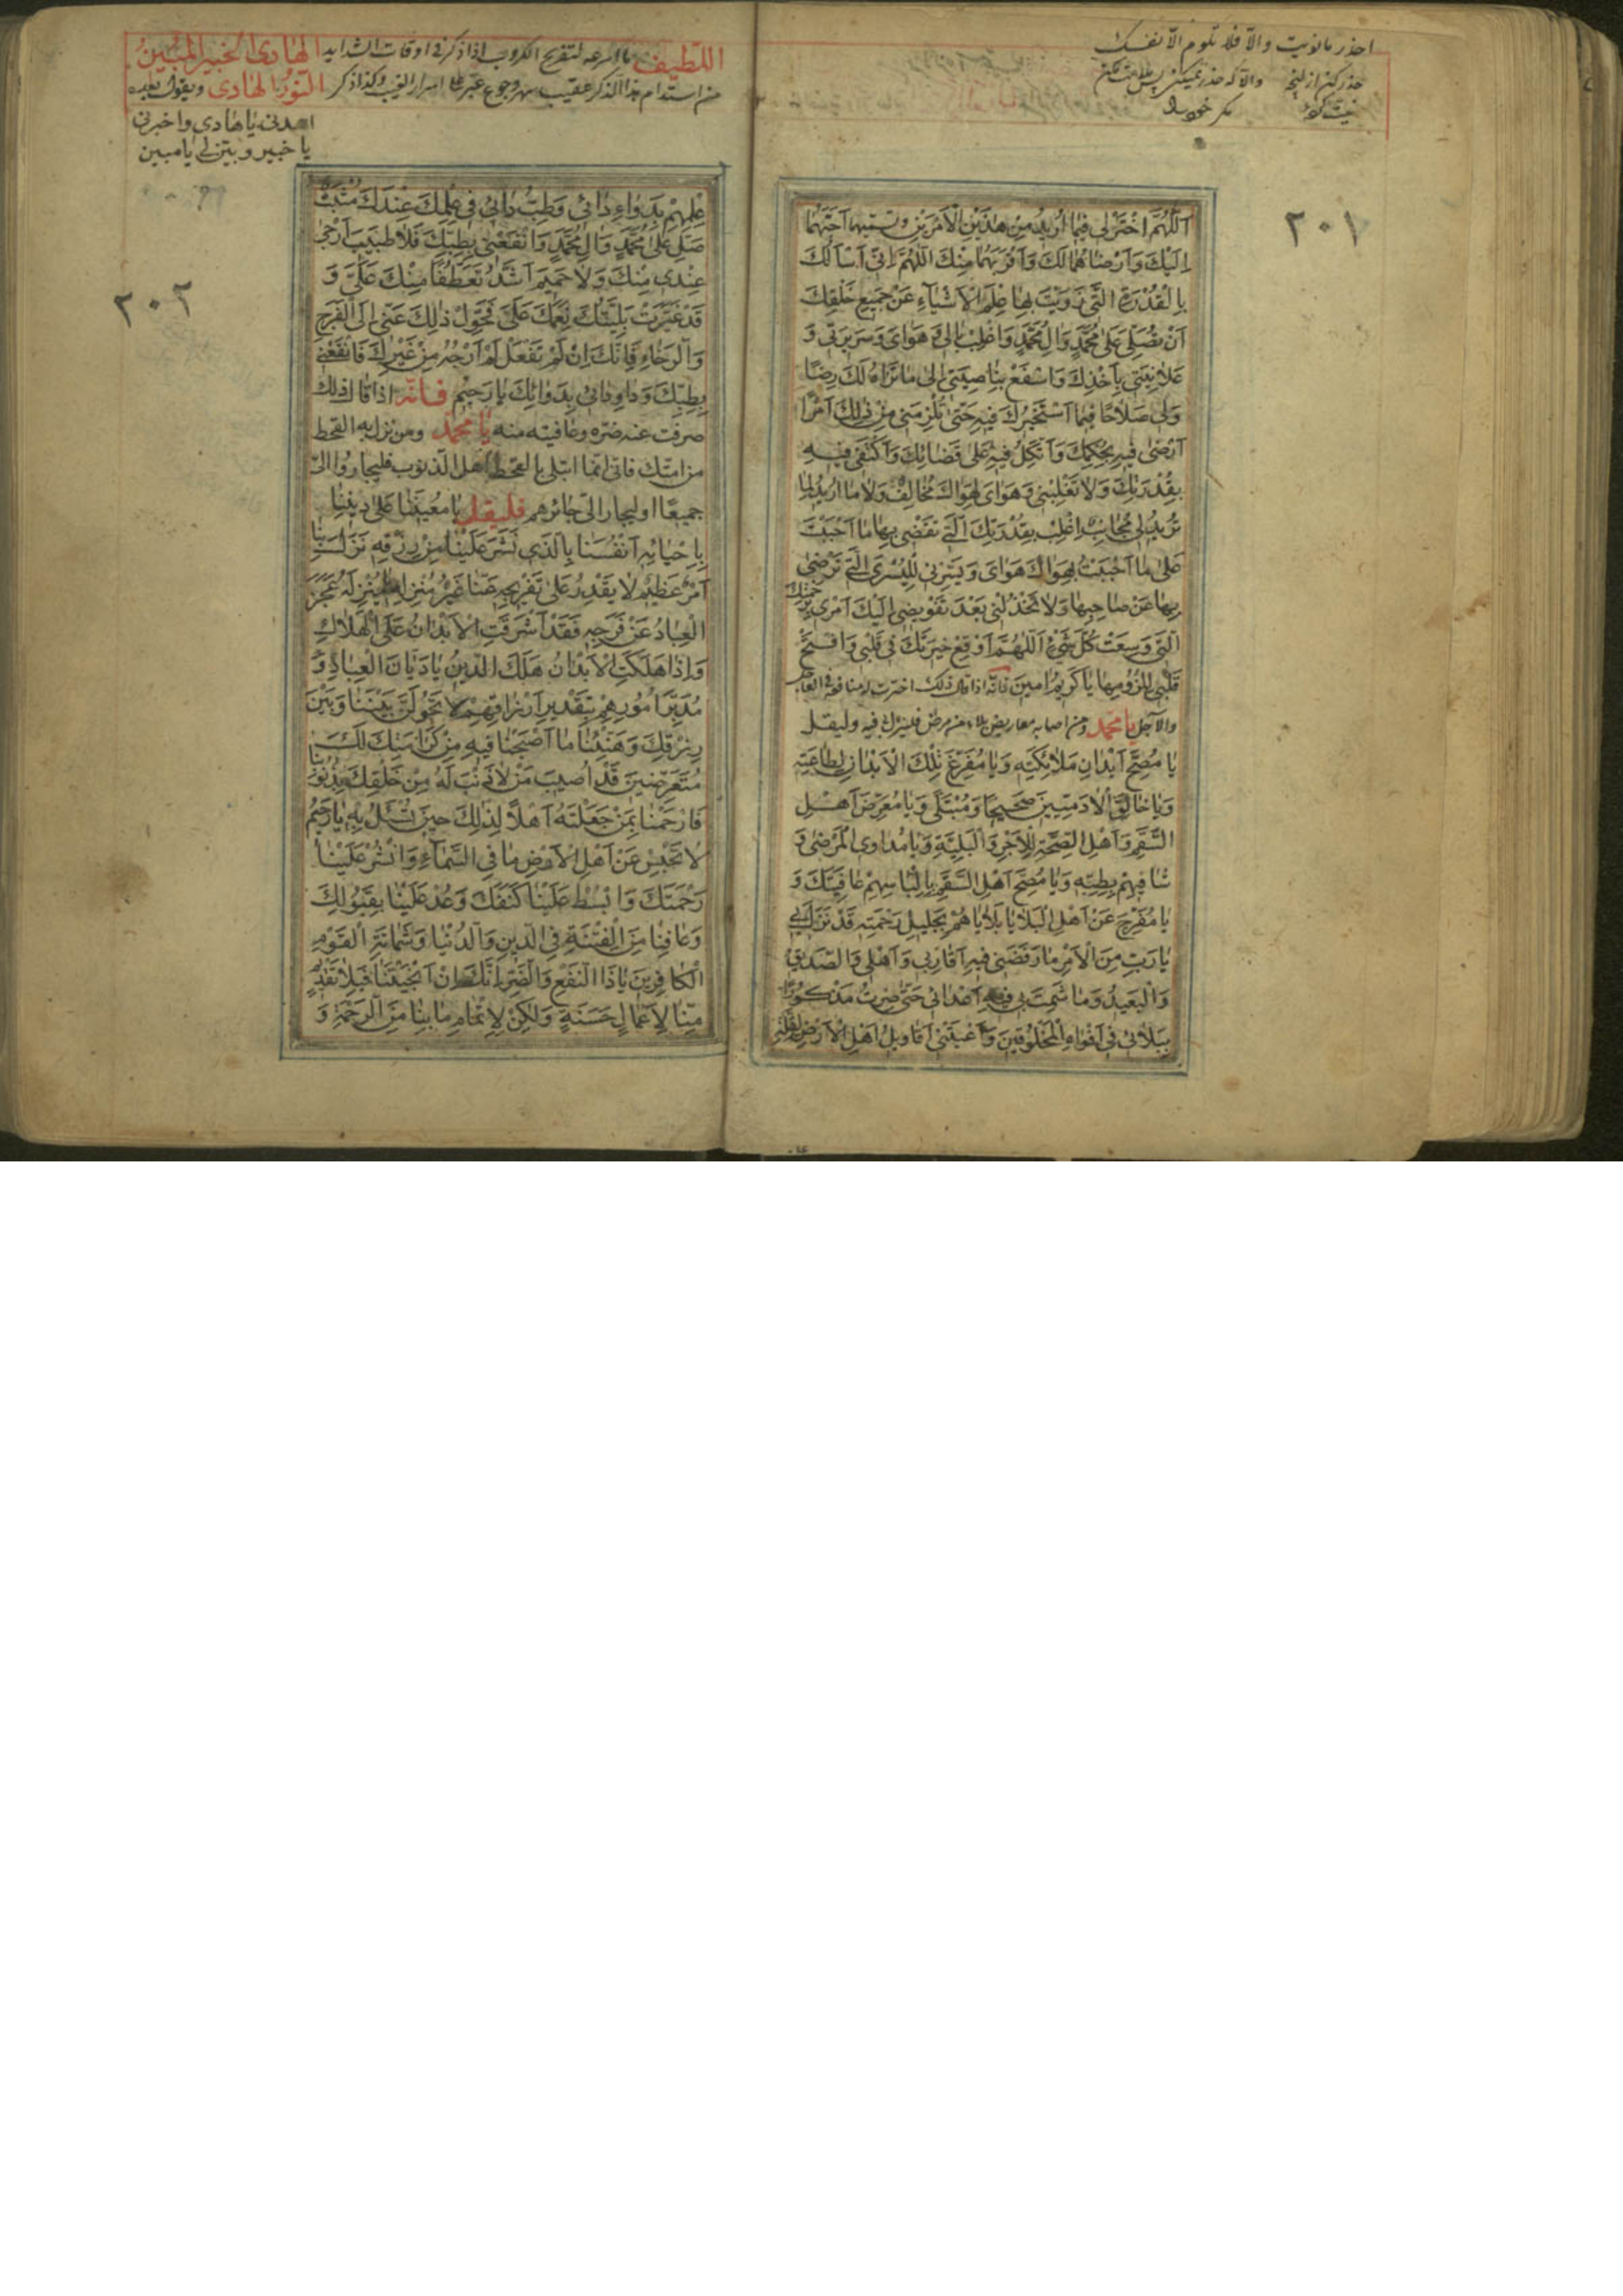 احذر ما نويت والّا فلا تلوم الّا نفسك
٢٠١
اَللّٰهُمَّ اخْتَرْ لِى فِيمَا اُرِيدُ مِنْ هٰذَيْنِ الْاَمْرَيْنِ وتسميهما اَحَبَّهُمَا
اِلَيْكَ وَاَرْضَاهُمَا لَكَ وَاَقْرَبَهُمَا مِنْكَ اَللّٰهُمَّ اِنِّى اَسْاَلُكَ
بِالْقُدْرَةِ الَّتِى زَوَيْتَ بِهَا عِلْمَ الْاَشْيَاءِ عَنْ جَمِيعِ خَلْقِكَ
اَنْ تُصَلِّىَ عَلٰى مُحَمَّدٍ وَاٰلِ مُحَمَّدٍ وَاغْلِبْ بَالِى وَهَوَاىَ وَسَرِيرَتِى وَ
عَلَانِيَتِى بِاَخْذِكَ وَاسْفَعْ بِنَاصِيَتِى اِلٰى مَا تَرَاهُ لَكَ رِضًا
وَلِى صَلَاحًا فِيمَا اَسْتَخِيرُكَ فِيهِ حَتّٰى تُلْزِمَنِى مِنْ ذٰلِكَ اَمْرًا
اَرْضٰى فِيهِ بِحُكْمِكَ وَاَتَّكِلُ فِيهِ عَلٰى قَضَائِكَ وَاَكْتَفِى فِيهِ
بِقُدْرَتِكَ وَلَا تَقْلِبْنِى وَهَوَاىَ لِهَوَاكَ مُخَالِفٌ وَلَا مَا اُرِيدُ لِمَا
تُرِيدُ لِى مُجَانِبٌ اغْلِبْ بِقُدْرَتِكَ الَّتِى تَقْضِى بِهَا مَا اَحْبَبْتَ
عَلٰى مَا اَحْبَبْتُ بِهَوَاكَ هَوَاىَ وَيَسِّرْنِى لِلْيُسْرَى الَّتِى تَرْضٰى
بِهَا عَنْ صَاحِبِهَا وَلَا تَخْذُلْنِى بَعْدَ تَفْوِيضِى اِلَيْكَ اَمْرِى بِرَحْمَتِكَ
الَّتِى وَسِعَتْ كُلَّ شَىْءٍ اَللّٰهُمَّ اَوْقِعْ خِيَرَتَكَ فِى قَلْبِى وَافْتَحْ
قَلْبِى لِلُزُومِهَا يَا كَرِيمُ اٰمِينَ فانّه اذا قال ذلك اخترت له منافعه فى العاجل
والآجل يا محمد ومن اصابه معاريض بلاء من مرض فلينزل بى فيه وليقل
يَا مُصِحَّ اَبْدَانِ مَلَائِكَتِهِ وَيَا مُفَرِّغَ تِلْكَ الْاَبْدَانِ لِطَاعَتِهِ
وَيَا خَالِقَ الْاٰدَمِيِّينَ صَحِيحًا وَمُبْتَلًى وَيَا مُعَرِّضَ اَهْلِ
السَّقَمِ وَاَهْلِ الصِّحَّةِ لِلْاَجْرِ وَالْبَلِيَّةِ وَيَا مُدَاوِىَ الْمَرْضٰى وَ
شَافِيَهُمْ بِطِبِّهِ وَيَا مُصِحَّ اَهْلِ السَّقَمِ بِالْبَاسِهِمْ عَافِيَتَكَ وَ
يَا مُفَرِّجَ عَنْ اَهْلِ الْبَلَايَا بَلَايَاهُمْ بِجَلِيلِ رَحْمَتِهِ قَدْ نَزَلَ بِى
يَا رَبِّ مِنَ الْاَمْرِ مَا رَفَضَنِى فِيهِ اَقَارِبِى وَاَهْلِى وَالصَّدِيقُ
وَالْبَعِيدُ وَمَا شَمِتَ بِى فِيهِ اَعْدَائِى حَتّٰى صِرْتُ مَذْكُورًا
بِبَلَائِى فِى اَفْوَاهِ الْمَخْلُوقِينَ وَاَعْيَتْنِى اَقَاوِيلُ اَهْلِ الْاَرْضِ لِقِلَّةِ
اللّطيف ما اسرعه لتفريج الكروب اذا ذكر فى اوقات الشدايد الهادى الخبير المبين
من استدام هذا الذكر عقيب سهر وجوع عبر على اسرار الغيب وكذا ذكر النّور الهادى ويقول بعده
اهدنى يا هادى واخبرنى
يا خبير وبيّن لى يا مبين
٢٠٢
عِلْمِهِمْ بِدَوَاءِ دَائِى وَطِبُّ دَائِى فِى عِلْمِكَ عِنْدَكَ مُثْبَتٌ
صَلِّ عَلٰى مُحَمَّدٍ وَاٰلِ مُحَمَّدٍ وَانْفَعْنِى بِطِبِّكَ فَلَا طَبِيبَ اَرْجٰى
عِنْدِى مِنْكَ وَلَا حَمِيمَ اَشَدُّ تَعَطُّفًا مِنْكَ عَلَىَّ وَ
قَدْ غَيَّرَتْ بَلِيَّتُكَ نِعَمَكَ عَلَىَّ فَحَوِّلْ ذٰلِكَ عَنِّى اِلَى الْفَرَجِ
وَالرَّخَاءِ فَاِنَّكَ اِنْ لَمْ تَفْعَلْ لَمْ اَرْجُهُ مِنْ غَيْرِكَ فَانْفَعْنِى
بِطِبِّكَ وَدَاوِ دَائِى بِدَوَائِكَ يَا رَحِيمُ فانّه اذا قال ذلك
صرفت عنه ضرّه وعافيته منه يا محمد ومن نزل به القحط
من امّتك فانّى انّما ابتلى بالقحط اهل الذنوب فليجاروا الىّ
جميعًا او ليجار الىّ جائرهم فليقل يَا مُعِينَنَا عَلٰى دِينِنَا
بِاِحْيَائِهِ اَنْفُسَنَا بِالَّذِى نَشَرَ عَلَيْنَا مِنْ رِزْقِهِ نَزَلَ بِنَا
اَمْرٌ عَظِيمٌ لَا يَقْدِرُ عَلٰى تَفْرِيجِهِ عَنَّا غَيْرُ مُنْزِلِهِ يَا مُنْزِلَهُ عَجَزَ
الْعِبَادُ عَنْ فَرَجِهِ فَقَدْ اَشْرَفَتِ الْاَبْدَانُ عَلَى الْهَلَاكِ
وَاِذَا هَلَكَتِ الْاَبْدَانُ هَلَكَ الدِّينُ يَا دَيَّانَ الْعِبَادِ وَ
مُدَبِّرَ اُمُورِهِمْ بِتَقْدِيرِ اَرْزَاقِهِمْ لَا تَحُولَنَّ بَيْنَنَا وَبَيْنَ
رِزْقِكَ وَهَنِّئْنَا مَا اَصْبَحْنَا فِيهِ مِنْ كَرَامَتِكَ لَكَ
مُتَعَرِّضِينَ قَدْ اُصِيبَ مَنْ لَا ذَنْبَ لَهُ مِنْ خَلْقِكَ بِذُنُوبِنَا
فَارْحَمْنَا بِمَنْ جَعَلْتَهُ اَهْلًا لِذٰلِكَ حِينَ تُسْئَلُ بِهِ يَا رَحِيمُ
لَا تَحْبِسْ عَنْ اَهْلِ الْاَرْضِ مَا فِى السَّمَاءِ وَانْشُرْ عَلَيْنَا
رَحْمَتَكَ وَابْسُطْ عَلَيْنَا كَنَفَكَ وَعُدْ عَلَيْنَا بِقَبُولِكَ
وَعَافِنَا مِنَ الْفِتْنَةِ فِى الدِّينِ وَالدُّنْيَا وَشَمَاتَةِ الْقَوْمِ
الْكَافِرِينَ يَا ذَا النَّفْعِ وَالضَّرِّ اِنَّكَ اِنْ اَنْجَيْتَنَا فَبِلَا تَقْدِيمٍ
مِنَّا لِاَعْمَالٍ حَسَنَةٍ وَلٰكِنْ لِاِتْمَامِ مَا بِنَا مِنَ الرَّحْمَةِ وَ